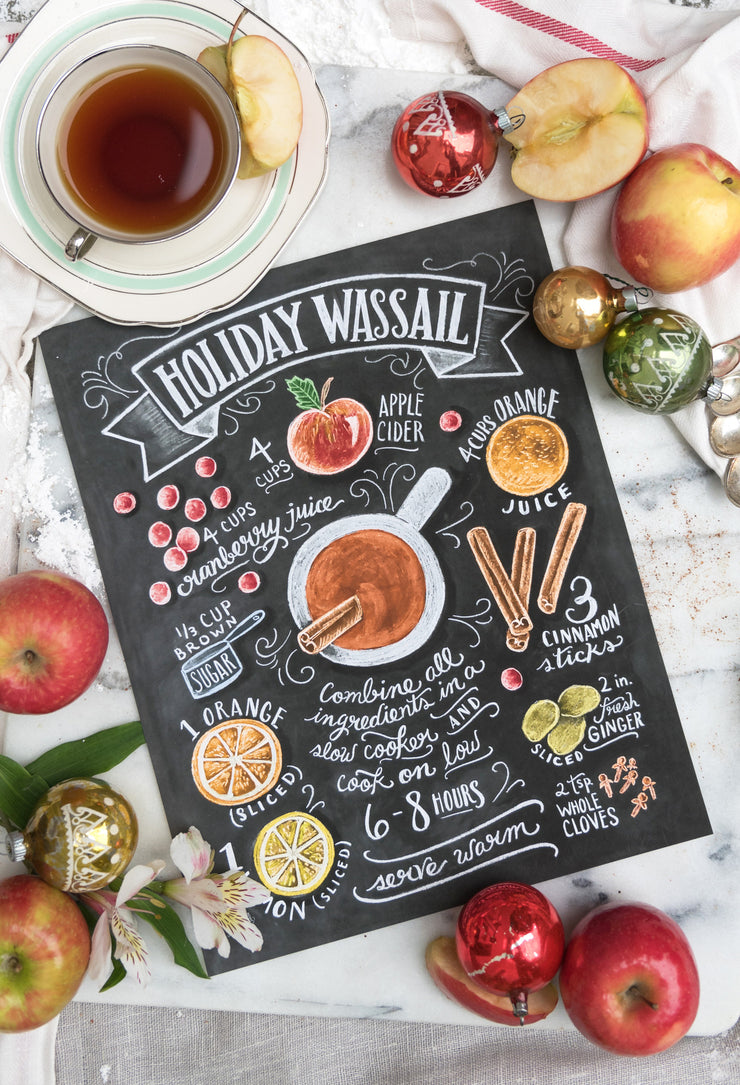 HOLIDAY WASSAIL
4
CUPS
APPLE
CIDER
4 CUPS ORANGE
JUICE
4 CUPS
cranberry juice
1/3 CUP
BROWN
SUGAR
3
CINNAMON
sticks
1 ORANGE
(SLICED)
Combine all
ingredients in a
slow cooker AND
cook on low
6-8 HOURS
serve warm
2 in.
fresh
GINGER
SLICED
2 tsp
WHOLE
CLOVES
1
(SLICED)